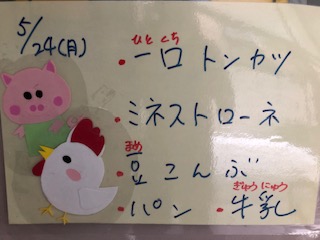 5/24(月)
ひとくち
・一口トンカツ
・ミネストローネ
まめ
・豆こんぶ
ぎゅうにゅう
・パン ・牛乳